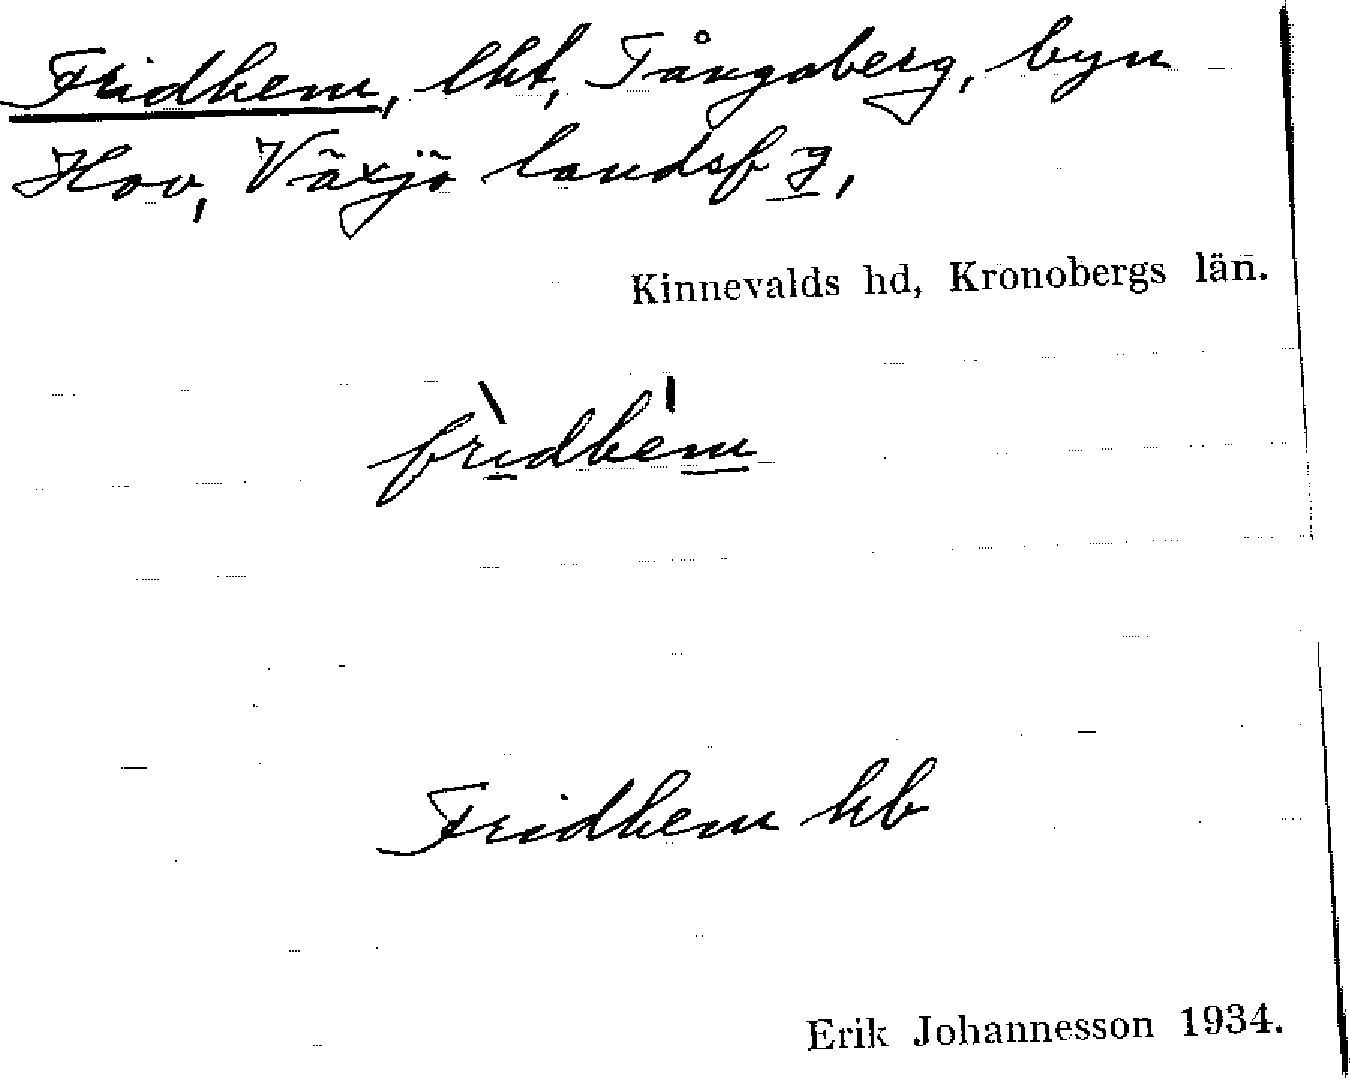 Fridhem, lht, Tångaberg, byn
Hov, Växjö landsf J,
Kinnevalds hd, Kronobergs län.
fri̲dhem̲
Fridhem hb
Erik Johannesson 1934.